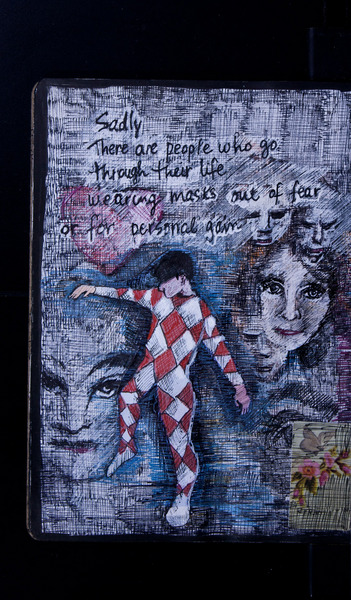 Sadly
There are people who go
through their life
wearing masks out of fear
or for personal gain